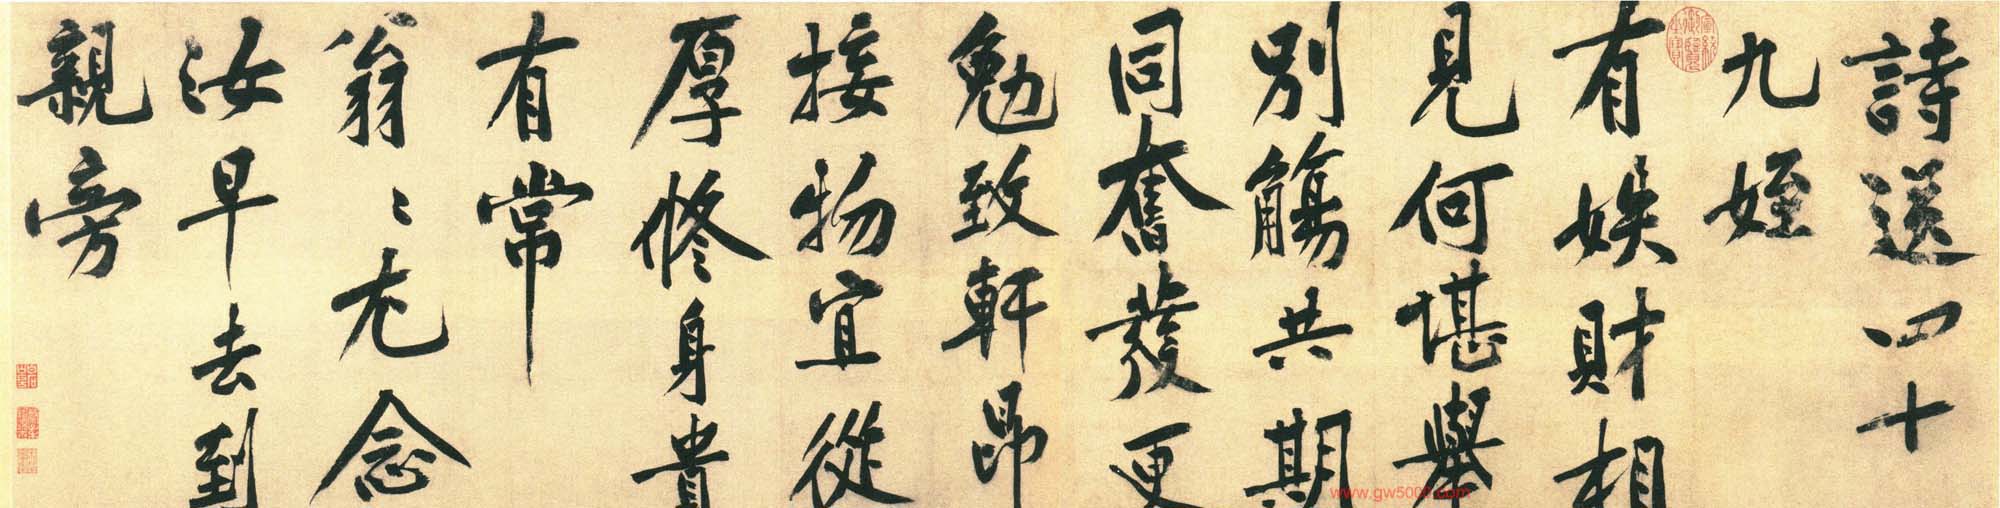 詩送四十
九姪
有娱財相
見何堪舉
別觴共期
同奮發更
勉致軒昂
接物宜從
厚修身貴
有常
翁〻尤念
汝早去到
親旁
www.gw5000.com